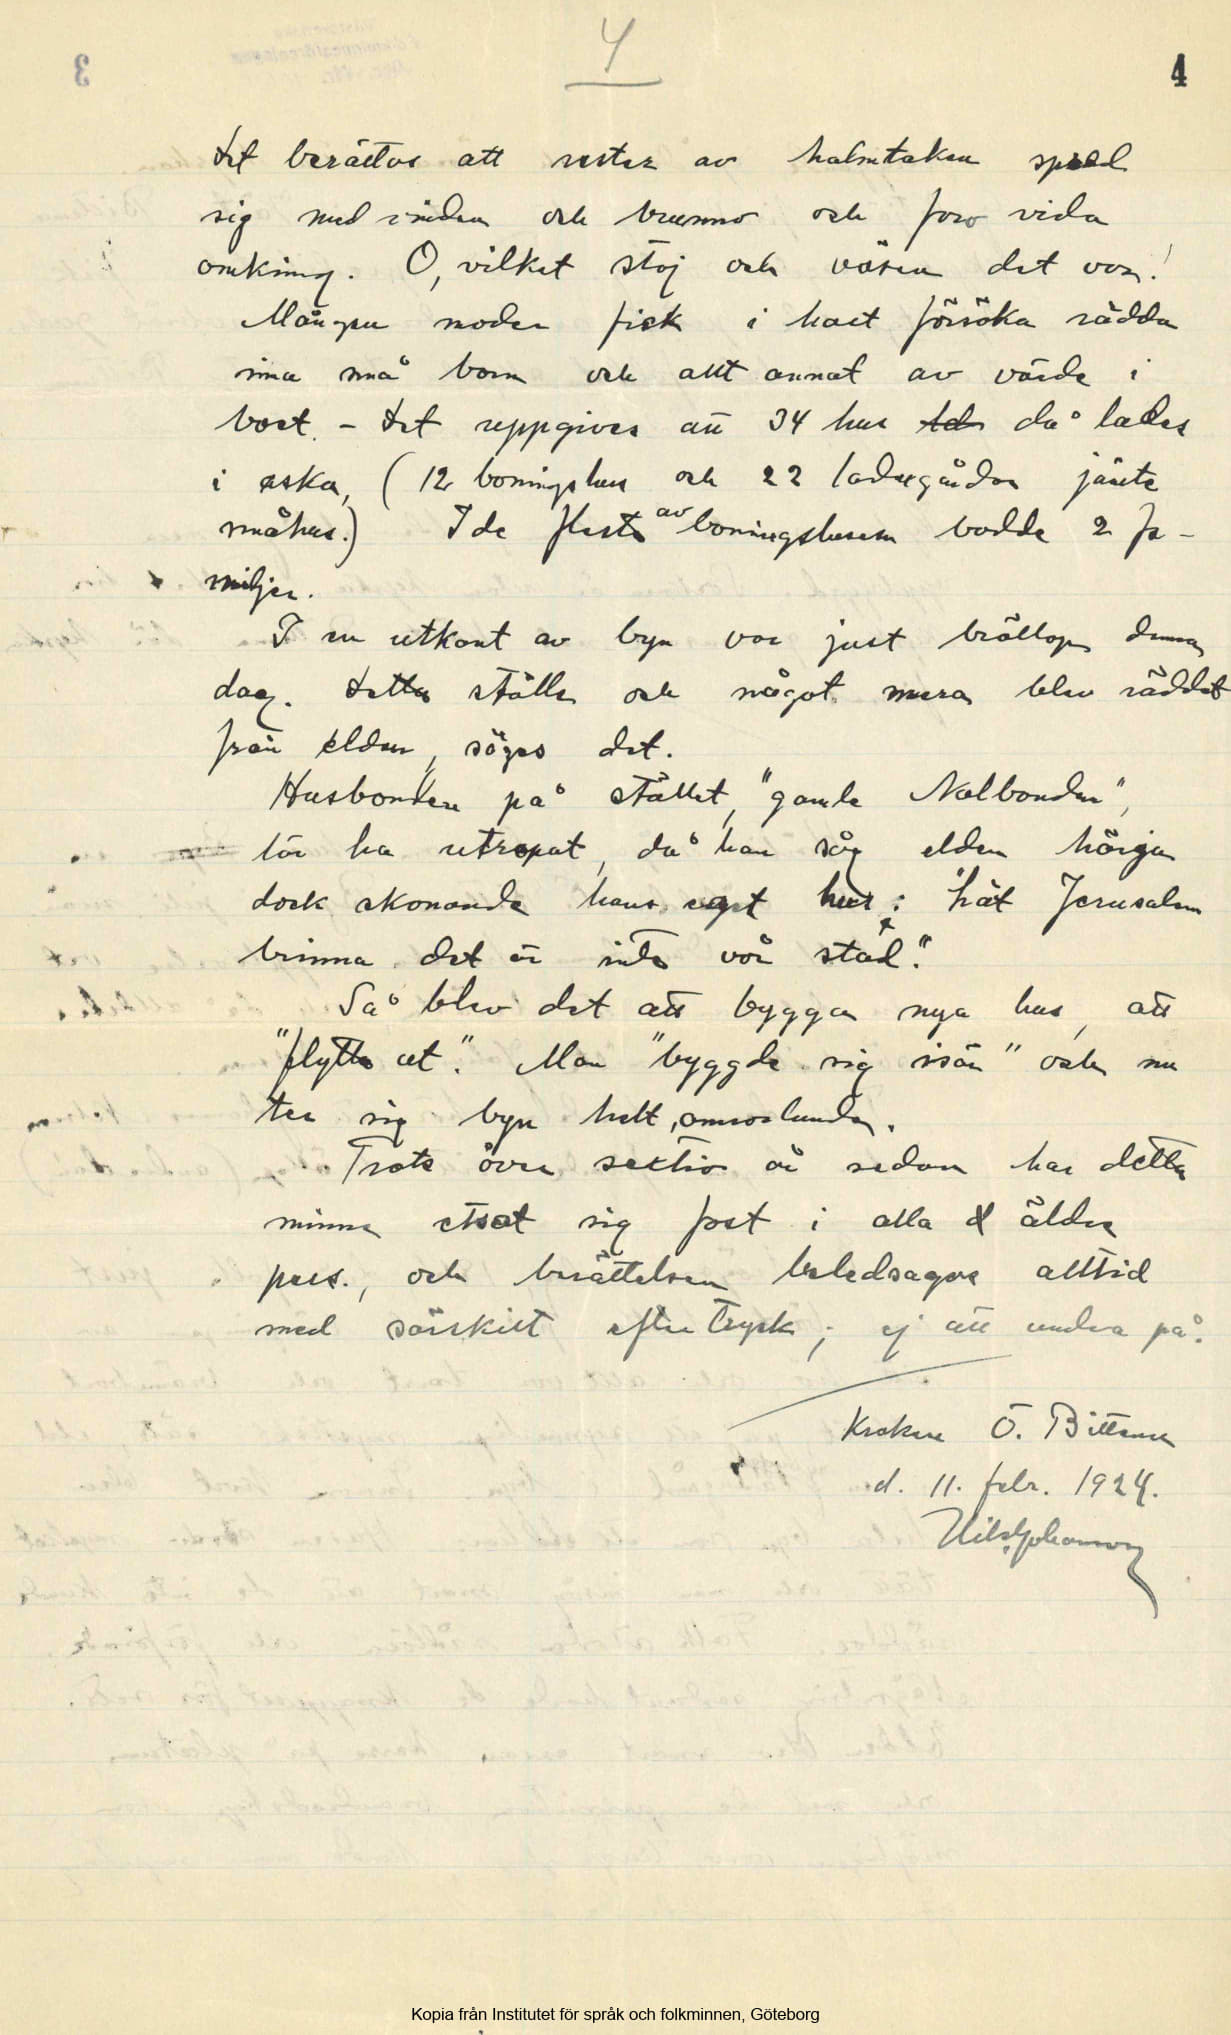 4
4
Det berättas att rester av halmtaken spred
sig med vinden och brunno och foro vida
omkring. O, vilket stoj och väsen det var!
Mången moder fick i hast försöka rädda
sina små barn och allt annat av värde i
bost. – Det uppgives att 34 hus då lades
i aska, (12 boningshus och 22 ladugårdar jämte
småhus.) I de flesta av boningshusen bodde 2 fa-
miljer.
I en utkant av byn var just bröllop denna
dag. Detta ställe och något mera blev räddat
från elden, säges det.
Husbonden på stället, "gamle Nolbonden",
lär ha utropat, då han såg elden härja
dock skonande hans eget hus: "Låt Jerusalem
brinna det är inte vår stad."
Så blev det att bygga nya hus, att
"flytta ut". Man "byggde sig isär" och nu
ter sig byn helt annorlunda.
Trots över sextio år sedan har detta
minne etsat sig fast i alla äldre
pers., och berättelsen beledsagas alltid
med särskilt eftertryck; ej att undra på.
Kroken Ö. Bitterna
d. 11. febr. 1924.
Nils Johansson
Kopia från Institutet för språk och folkminnen, Göteborg